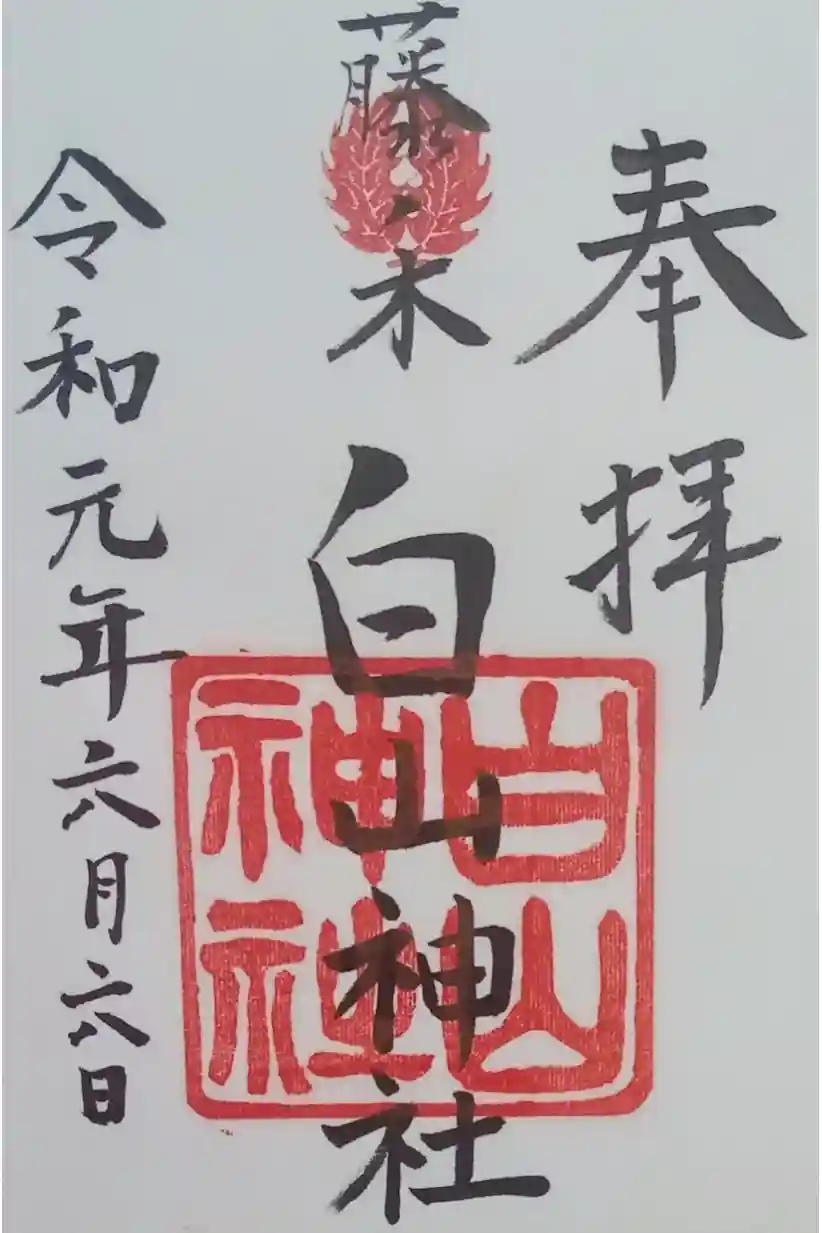 奉拝
藤ノ木
白山神社
白山
神社
令和元年六月六日